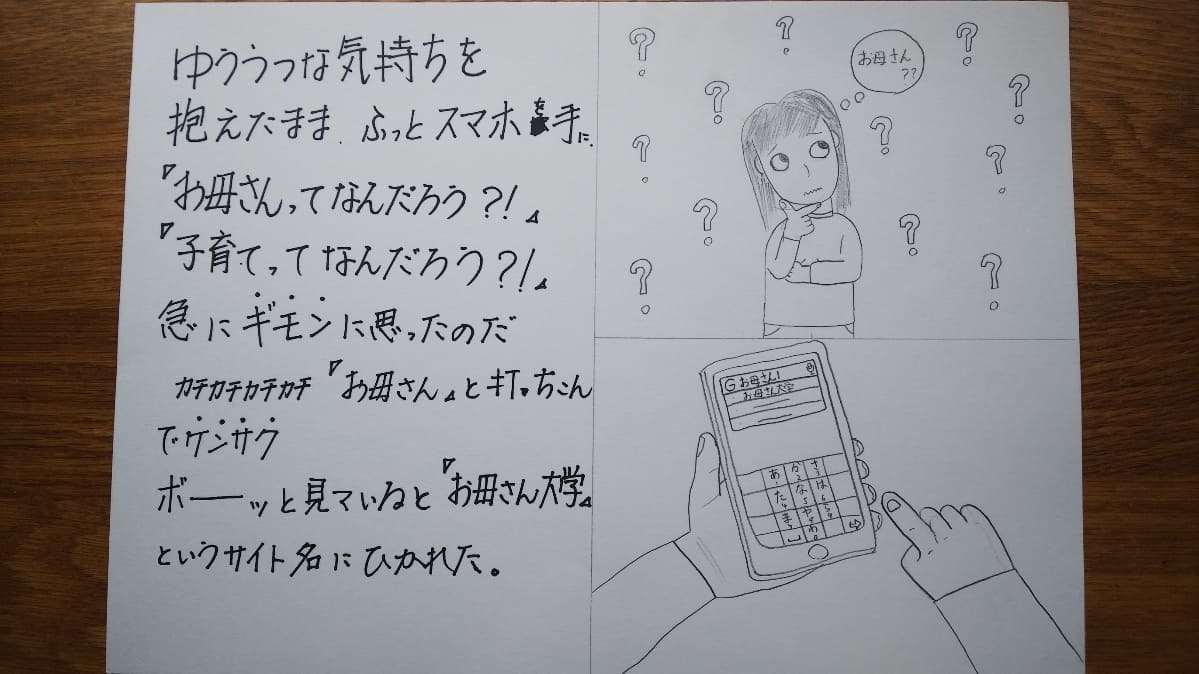 ゆううつな気持ちを
抱えたまま、ふっとスマホを手に
『お母さんってなんだろう?!』
『子育てってなんだろう?!』
急にギモンに思ったのだ
カチカチカチカチ『お母さん』と打っちこん
でケンサク
ボーッと見ていると『お母さん大学』
というサイト名にひかれた。
お母さん
??
? ? ? ? ? ? ? ? ? ? ? ?
G お母さん!
お母さん大学
あ か さ
た な は
ま や ら
わ